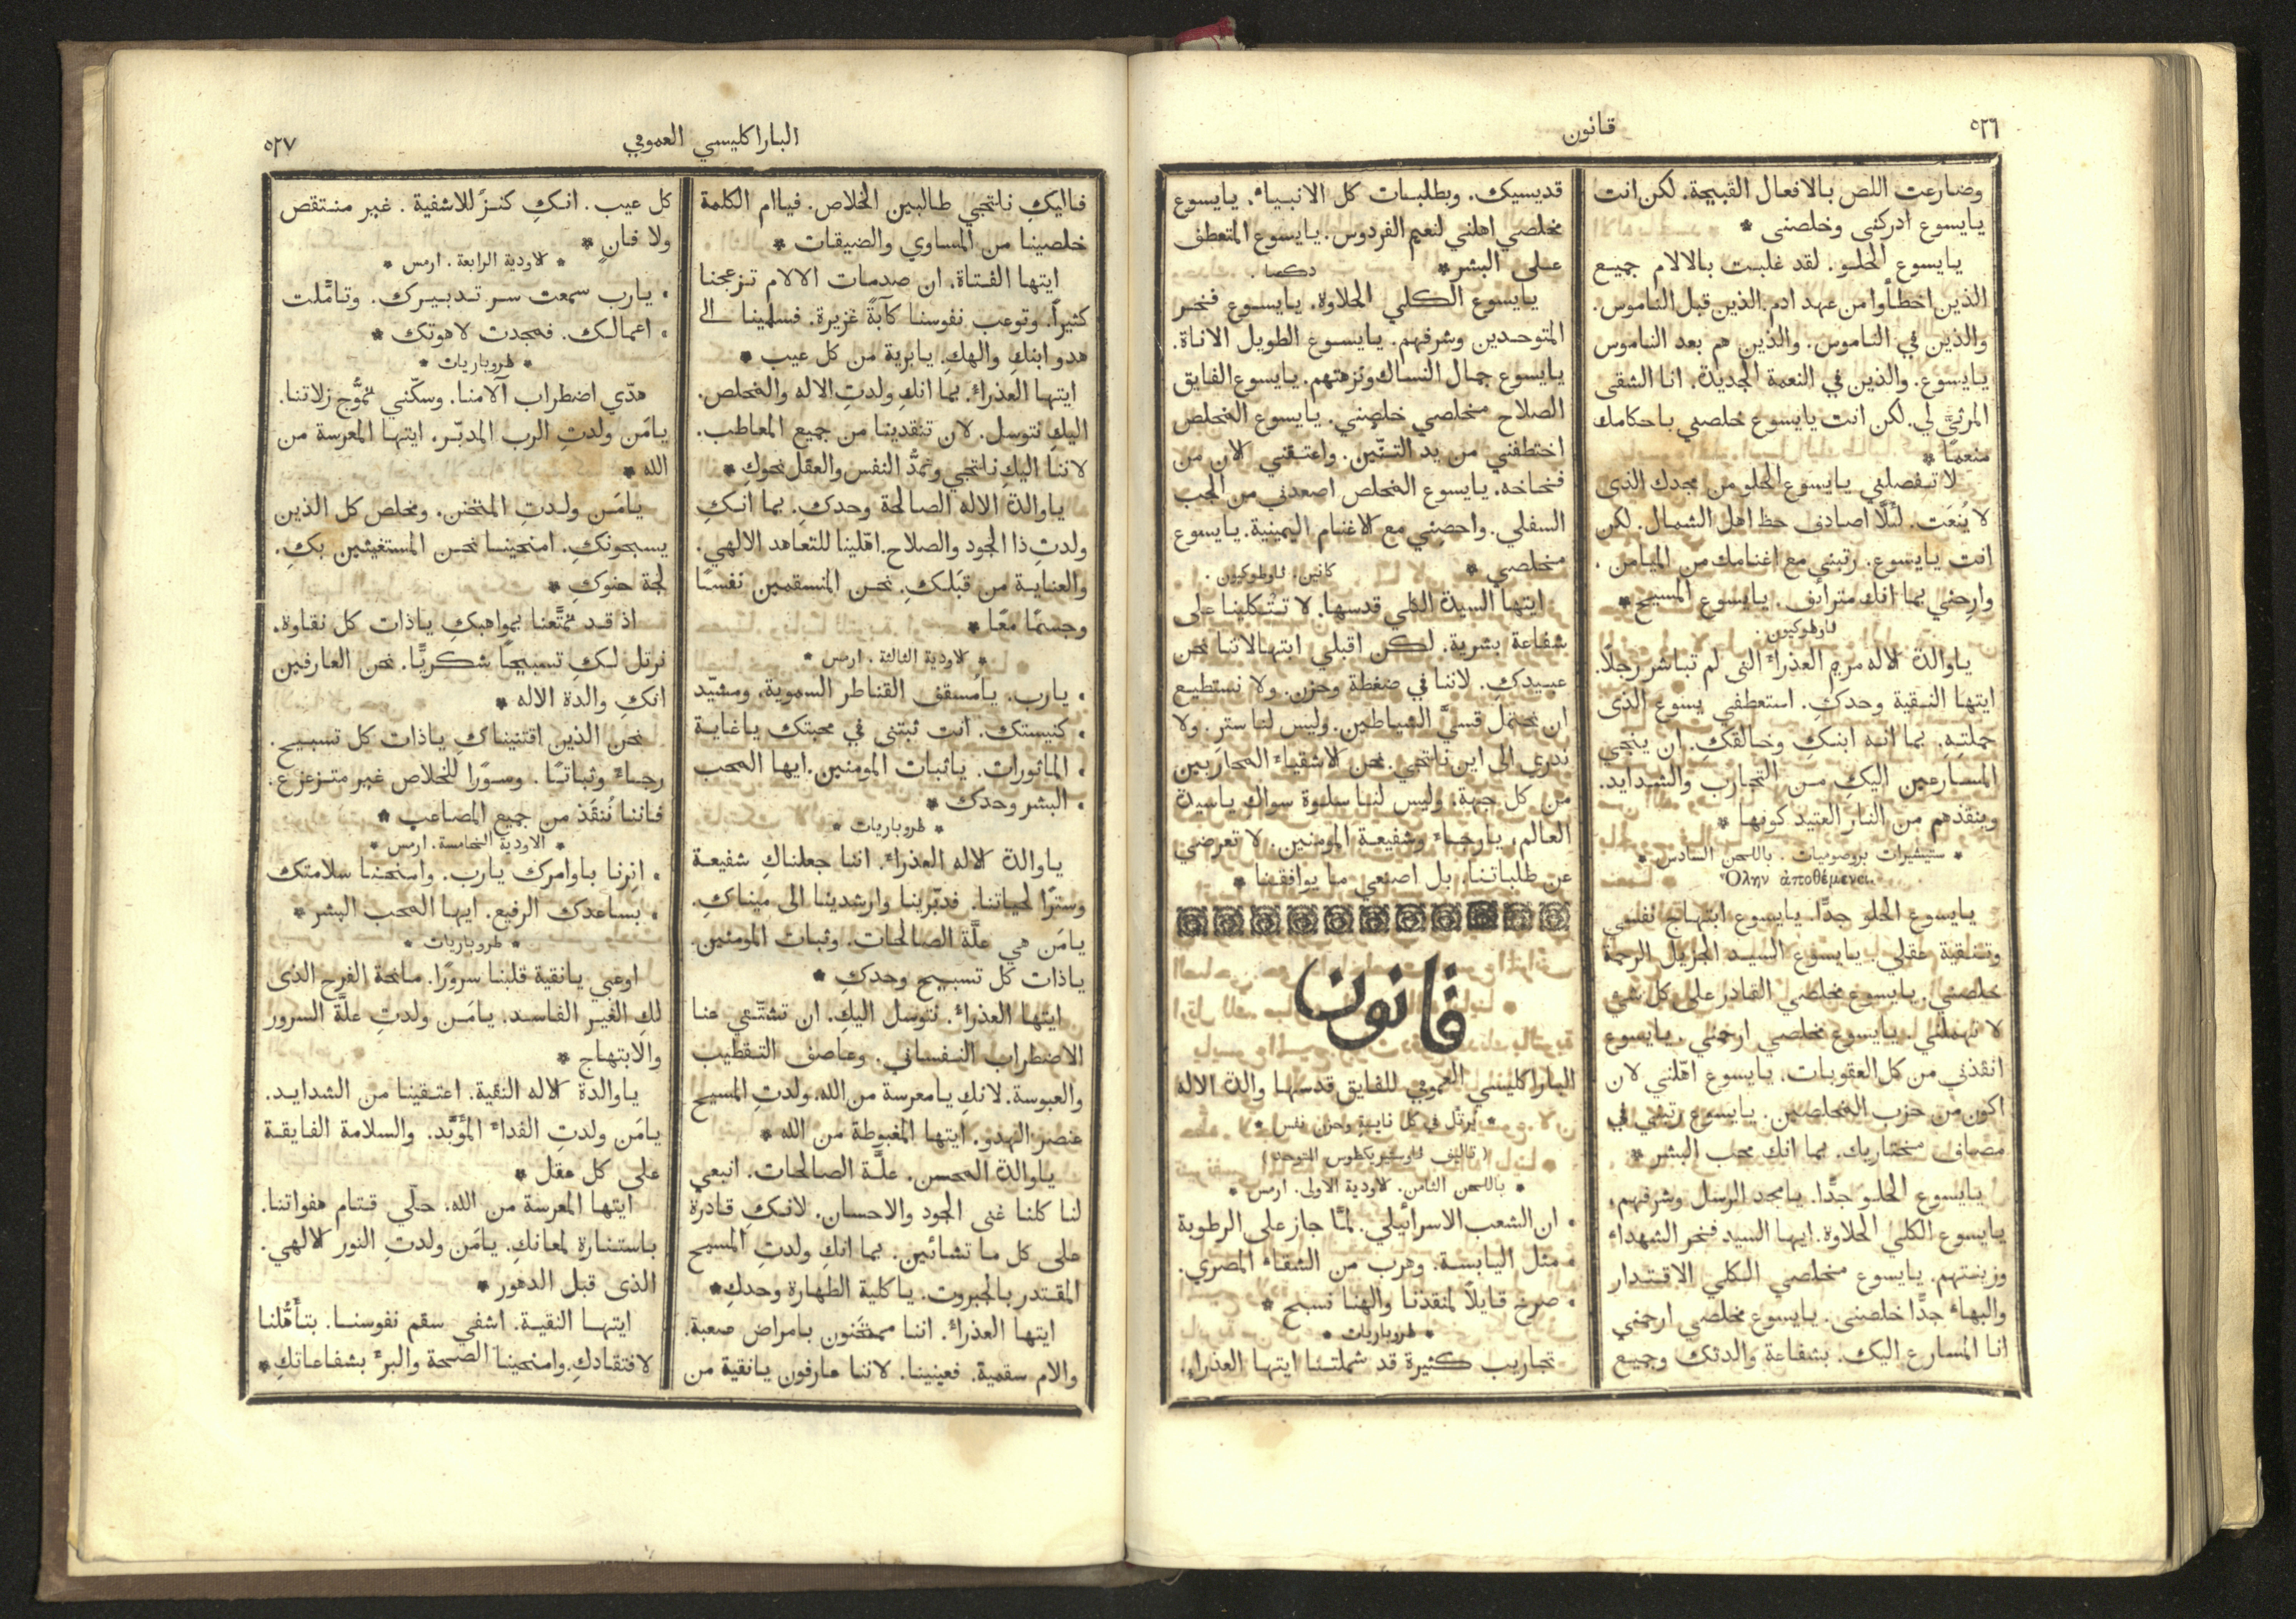 ٥٢٦
قانون
وضارعت اللص بالافعال القبيحة. لكن انت
يايسوع ادركنى وخلصنى *
يايسوع الحلو. لقد غلبت بالالام جميع
الذين اخطأوا من عهد ادم. الذين قبل الناموس.
والذين في الناموس. والذين هم بعد الناموس
يايسوع. والذين في النعمة الجديدة. انا الشقى
المرثيَّ لي. لكن انت يايسوع خلصني باحكامك
منعمًا *
لا تفصلني يايسوع الحلو من مجدك الذى
لا يُنعَت. لئلَّا اصادف حظ اهل الشمال. لكن
انت يايسوع. رتبنى مع اغنامك من الميامن.
وارحني بما انك مترأف. يايسوع المسيح *
ثاوطوكيون.
ياوالدة لاله مريم العذراء التى لم تباشر رجلًا.
ايتها النقية وحدكِ. استعطفي يسوع الذى
حملتِهِ. بما انه ابنكِ وخالقكِ. ان ينجي
المسارعين اليكِ من التجارب والشدايد.
وينقذهم من النار العتيد كونها *
* ستيشيرات بروصوميات. باللحن السادس *
Ὅλην ἀποθέμενοι.
يايسوع الحلو جدًّا. يايسوع ابتهاج نفسي
وتنقية عقلي. يايسوع السيد الجزيل الرحمة
خلصني. يايسوع مخلصي القادر على كل شي
لا تهملني. يايسوع مخلصي ارحمني. يايسوع
انقذني من كل العقوبات. يايسوع اهّلني لان
اكون من حزب المخلصين. يايسوع رتبني في
مصاف مختاريك. بما انك محب البشر *
يايسوع الحلو جدًّا. يامجد الرسل وشرفهم.
يايسوع الكلي الحلاوة. ايها السيد فخر الشهداء
وزينتهم. يايسوع مخلصي الكلي الاقتدار
والبهاء جدًّا خلصنى. يايسوع مخلصي ارحمني
انا المسارع اليك. بشفاعة والدتك وجميع
قديسيك. وبطلبات كل الانبياء. يايسوع
مخلصي اهلني لنعيم الفردوس. يايسوع المتعطف
على البشر * ذكصا.
يايسوع الكلي الحلاوة. يايسوع فخر
المتوحدين وشرفهم. يايسوع الطويل الاناة.
يايسوع جمال النساك ونزهتهم. يايسوع الفايق
الصلاح مخلصي خلصني. يايسوع المخلص
اختطفني من يد التنّين. واعتقني لان من
فخاخه. يايسوع المخلص اصعدني من الجب
السفلي. واحصِني مع لاغنام اليمينية. يايسوع
مخلصي * كانين. ثاوطوكيون.
ايتها السيدة الكلي قدسها. لا تتّكلينا على
شفاعة بشرية. لكن اقبلي ابتهالاتنا نحن
عبيدكِ. لاننا في ضغطة وحزن. ولا نستطيع
ان نحتمل قسيَّ الشياطين. وليس لنا ستر. ولا
ندري الى اين نلتجي. نحن لاشقياء المحاربين
من كل جهة. وليس لنا سلوة سواك ياسيدة
العالم. يارجاء وشفيعة المومنين. لا تعرضي
عن طلباتنا. بل اصنعي ما يوافقنا *
قانون
الباراكليسي العمومي للفايق قدسها والدة الاله
* يُرتل في كل نايبةٍ وحزن نفس *
* باللحن الثامن. لاودية الاولى. ارمس *
• ان الشعب الاسرائيلي. لمَّا جاز على الرطوبة
• مثل اليابسة. وهرب من الشقاء المصري.
• صرخ قايلًا لمنقذنا والهنا نسبح *
* طروباريات *
تجاريب كثيرة قد شملتنا ايتها العذراء.
الباراكليسي العمومي
٥٢٧
فاليكِ نلتجي طالبين الخلاص. فياام الكلمة
خلصينا من المساوي والضيقات *
ايتها الفتاة. ان صدمات الالام تزعجنا
كثيرًا. وتوعب نفوسنا كآبةً غزيرة. فسلمينا الى
هدو ابنكِ والهكِ. يابرية من كل عيب *
ايتها العذراء. بما انكِ ولدتِ الاله والمخلص.
اليكِ نتوسل. لان تنقذينا من جميع المعاطب.
لاننا اليكِ نلتجي ونمدُّ النفس والعقل نحوكِ *
ياوالدة الاله الصالحة وحدكِ. بما انكِ
ولدتِ ذا الجود والصلاح. اهّلينا للتعاهد الالهي.
والعناية من قبَلكِ. نحن المنسقمين نفسًا
وجسمًا معًا *
* لاودية الثالثة. ارمس *
• يارب. يامُسقف القناطر السموية. ومشيّد
• كنيستك. انت ثبتنى في محبتك ياغاية
• الماثورات. ياثبات المومنين. ايها المحب
• البشر وحدك *
* طروباريات *
ياوالدة لاله العذراء. اننا جعلناكِ شفيعة
وسترًا لحياتنا. فدبّرينا وارشدينا الى ميناكِ.
يامَن هي علَّة الصالحات. وثبات المومنين.
ياذات كل تسبيح وحدكِ *
ايتها العذراء. نتوسل اليكِ. ان تشتّتي عنا
الاضطراب النفساني. وعاصف التقطيب
والعبوسة. لانكِ يامعرسة من الله. ولدتِ المسيح
عنصر الهدو. ايتها المغبوطة من الله *
ياوالدة المحسن. علَّة الصالحات. انبعي
لنا كلنا غنى الجود والاحسان. لانكِ قادرة
على كل ما تشائين. بما انكِ ولدتِ المسيح
المقتدر بالجبروت. ياكلية الطهارة وحدكِ *
ايتها العذراء. اننا ممتحَنون بامراض صعبة.
والام سقمية. فعينينا. لاننا عارفون يانقية من
كل عيب. انكِ كنزٌ للاشفية. غير منتقص
ولا فانٍ *
* لاودية الرابعة. ارمس *
• يارب سمعت سر تدبيرك. وتامَّلت
• اعمالك. فمجدت لاهوتك *
* طروباريات *
هدّي اضطراب آلامنا. وسكّني تموُّج زلاتنا.
يامَن ولدتِ الرب المدبّر. ايتها المعرسة من
الله *
يامَن ولدتِ المتحنن. ومخلص كل الذين
يسبحونكِ. امنحينا نحن المستغيثين بكِ.
لجة حنوكِ *
اذ قد تمتَّعنا بمواهبكِ ياذات كل نقاوة.
نرتل لكِ تسبيحًا شكريًّا. نحن العارفين
انكِ والدة الاله *
نحن الذين اقتنيناكِ ياذات كل تسبيح.
رجاءً وثباتًا. وسورًا للخلاص غير متزعزع.
فاننا نُنقَذ من جميع المصاعب *
* الاودية الخامسة. ارمس *
• انِرنا باوامرك يارب. وامنحنا سلامتك
• بساعدك الرفيع. ايها المحب البشر *
* طروباريات *
اوعبي يانقية قلبنا سرورًا. مانحة الفرح الذى
لكِ الغير الفاسد. يامَن ولدتِ علَّة السرور
والابتهاج *
ياوالدة لاله النقية. اعتقينا من الشدايد.
يامَن ولدتِ الفداء المؤبَّد. والسلامة الفايقة
على كل عقل *
ايتها المعرسة من الله. حلّي قتام هفواتنا.
باستنارة لمعانكِ. يامَن ولدتِ النور لالهي.
الذى قبل الدهور *
ايتها النقية. اشفي سقم نفوسنا. بتأهُّلنا
لافتقادكِ. وامنحينا الصحة والبرء بشفاعاتكِ *